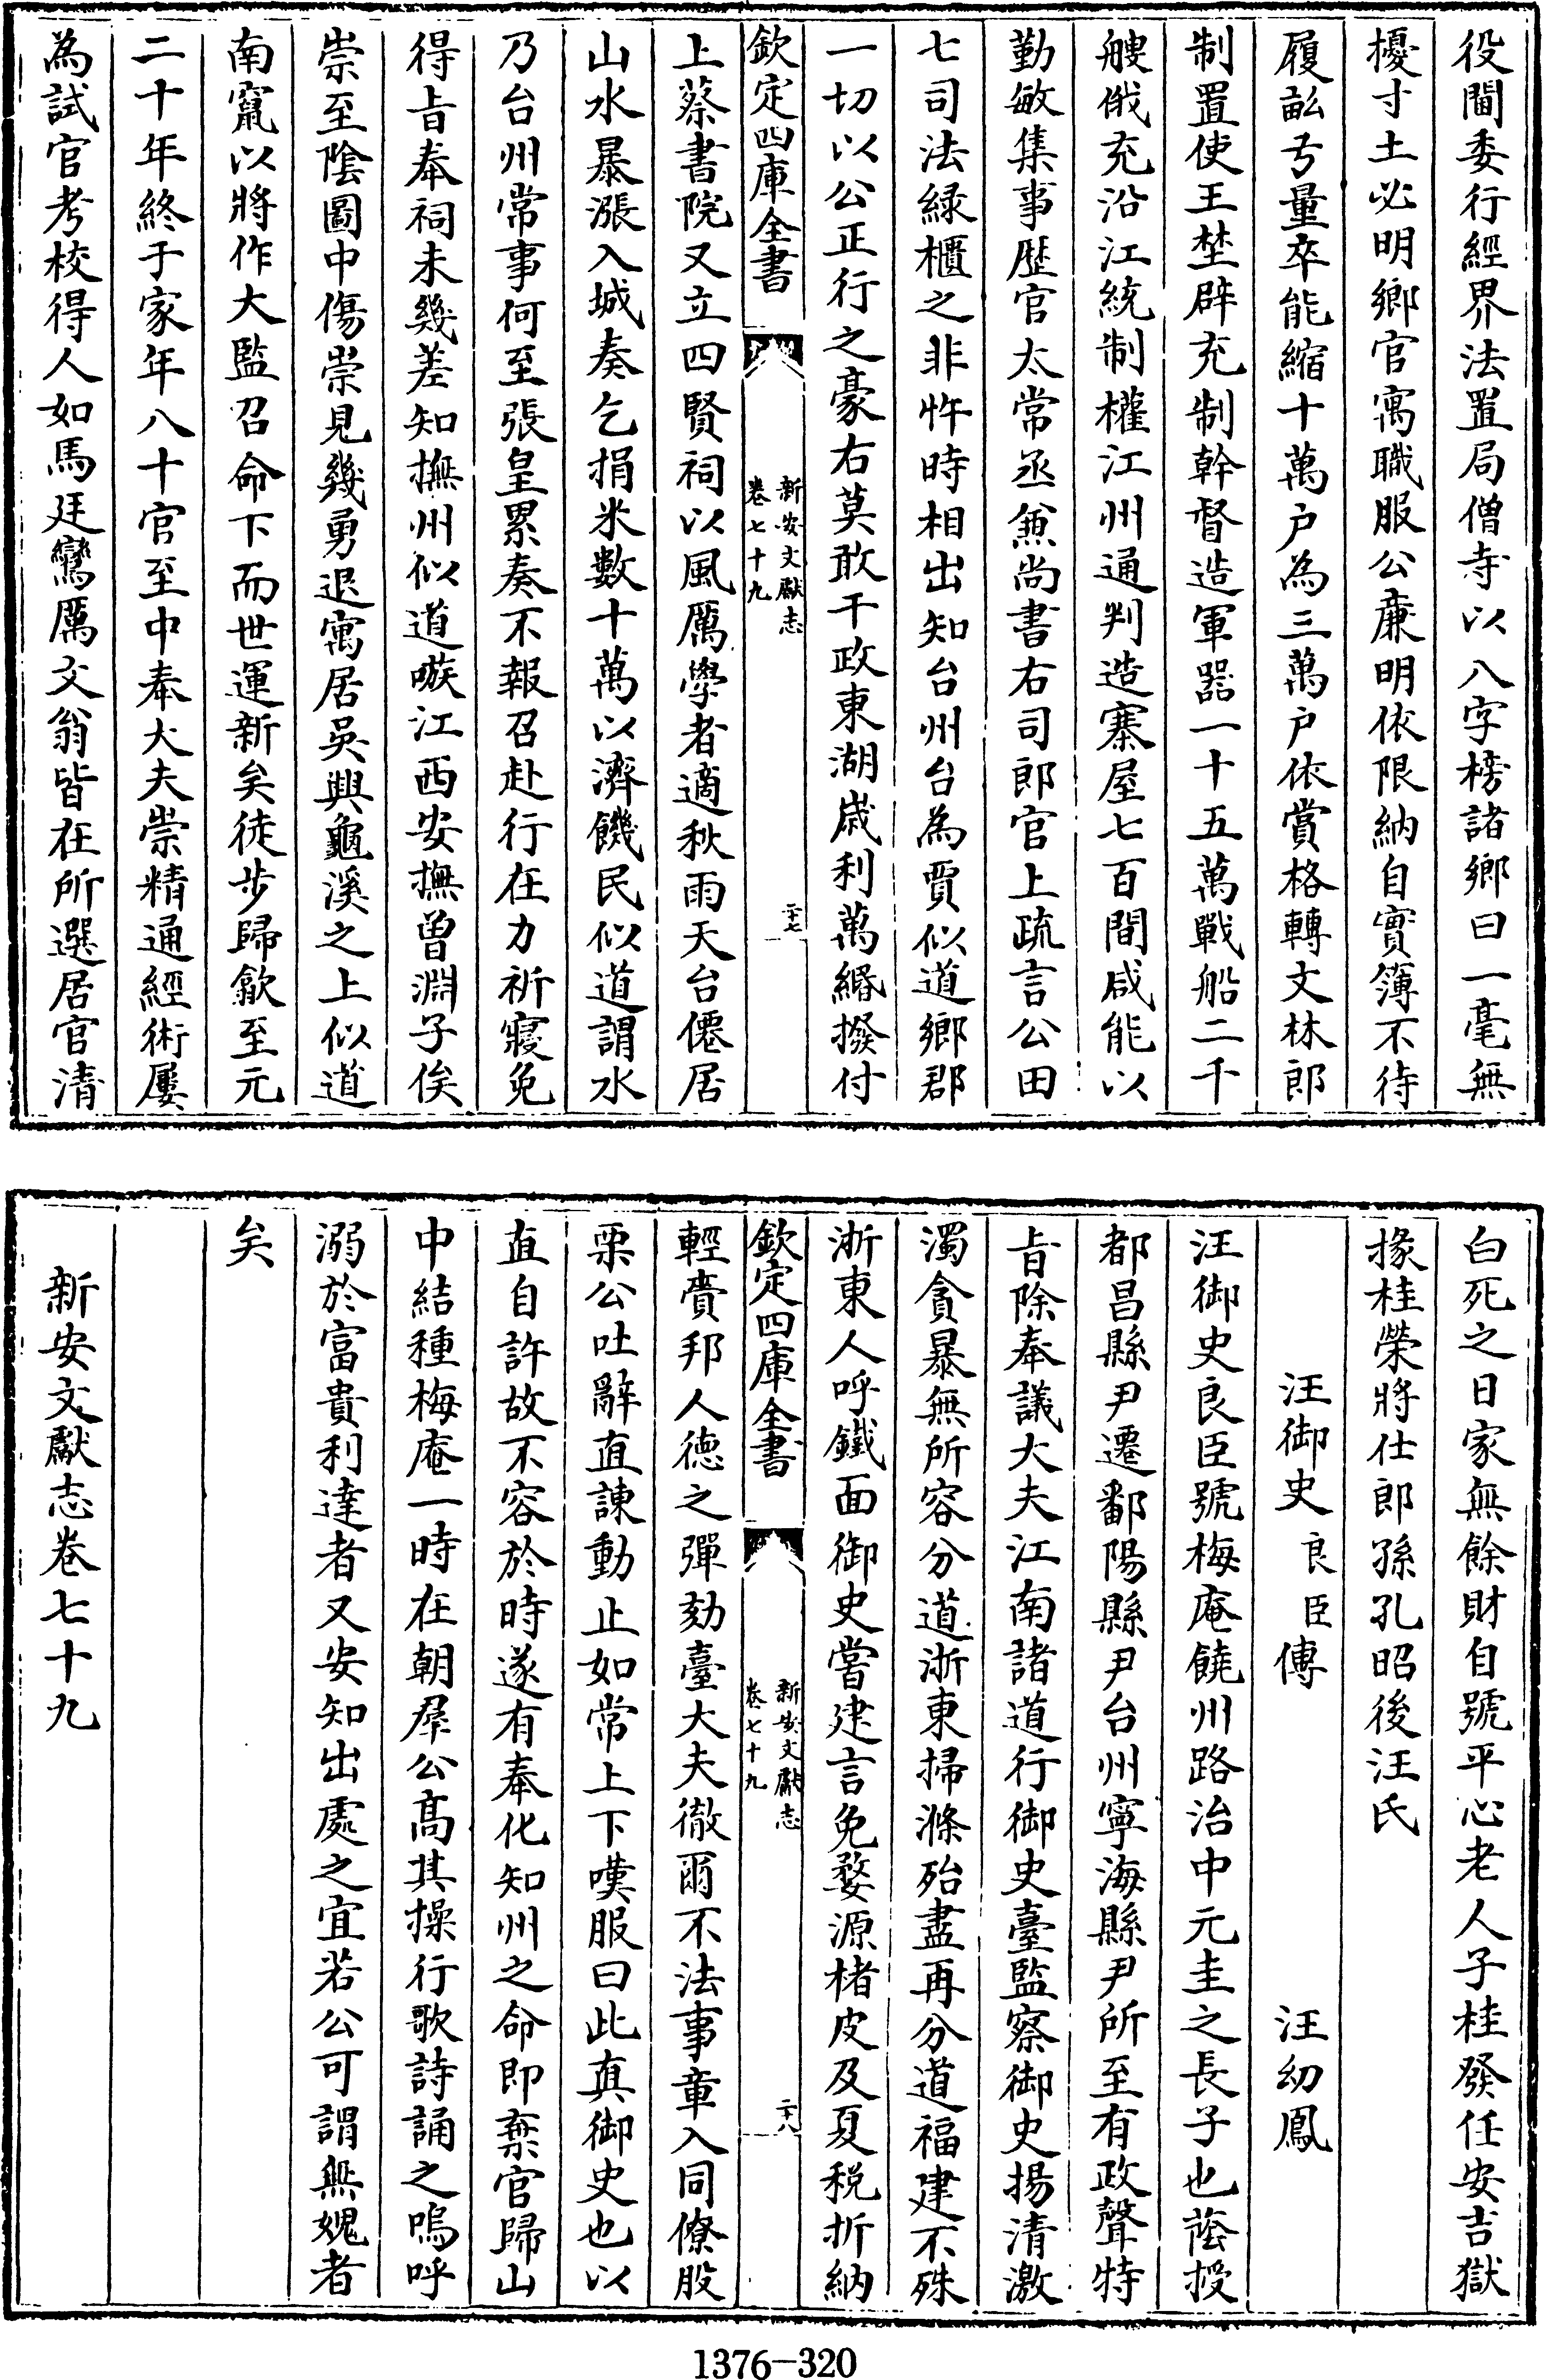 役閫委行經界法置局僧寺以八字榜諸鄉曰一毫無
擾寸土必明鄉官寓職服公亷明依限納自實簿不待
履畝弓量卒能縮十萬户為三萬户依賞格轉文林郎
制置使王埜辟充制幹督造軍器一十五萬戰船二千
艘俄充沿江統制權江州通判造寨屋七百間咸能以
勤敏集事歴官太常丞兼尚書右司郎官上疏言公田
七司法緑櫃之非忤時相出知台州台為賈似道鄉郡
一切以公正行之豪右莫敢干政東湖歲利萬緡撥付
欽定四庫全書
新安文獻志
卷七十九
二十七
上蔡書院又立四賢祠以風厲學者適秋雨天台僊居
山水暴漲入城奏乞捐米數十萬以濟饑民似道謂水
乃台州常事何至張皇累奏不報召赴行在力祈寢免
得㫖奉祠未幾差知撫州似道嗾江西安撫曾淵子俟
崇至陰圖中傷崇見幾勇退寓居吳興龜溪之上似道
南竄以將作大監召命下而世運新矣徒步歸歙至元
二十年終于家年八十官至中奉大夫崇精通經術屢
為試官考校得人如馬廷鸞厲文翁皆在所選居官清
白死之日家無餘財自號平心老人子桂發任安吉獄
掾桂榮將仕郎孫孔昭後汪氏
汪御史良臣傳 汪幼鳳
汪御史良臣號梅庵饒州路治中元圭之長子也蔭授
都昌縣尹遷鄱陽縣尹台州寧海縣尹所至有政聲特
㫖除奉議大夫江南諸道行御史臺監察御史揚清激
濁貪暴無所容分道浙東掃滌殆盡再分道福建不殊
浙東人呼鐵面御史嘗建言免婺源楮皮及夏税折納
欽定四庫全書
新安文獻志
卷七十九
二十八
輕賫邦人德之彈劾臺大夫徹爾不法事章入同僚股
栗公吐辭直諫動止如常上下嘆服曰此真御史也以
直自許故不容於時遂有奉化知州之命即棄官歸山
中結種梅庵一時在朝羣公髙其操行歌詩誦之嗚呼
溺於富貴利達者又安知出處之宜若公可謂無媿者
矣
新安文獻志卷七十九
1376-320